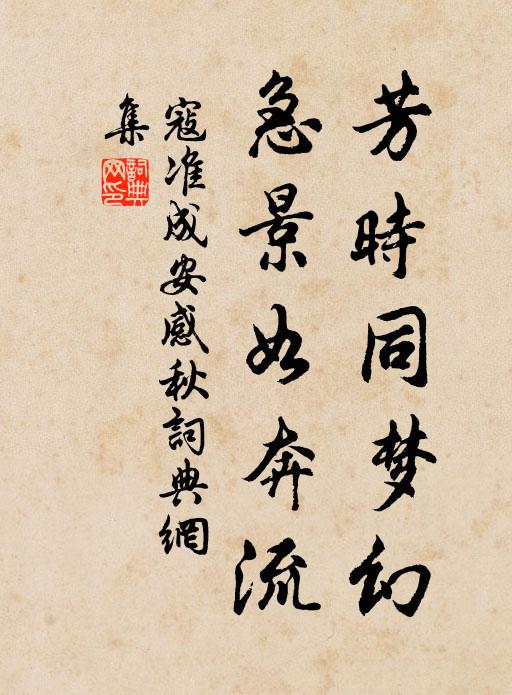 芳時同梦幻
急景如奔流
寇准成安感秋詞典網
集
詞典
网印